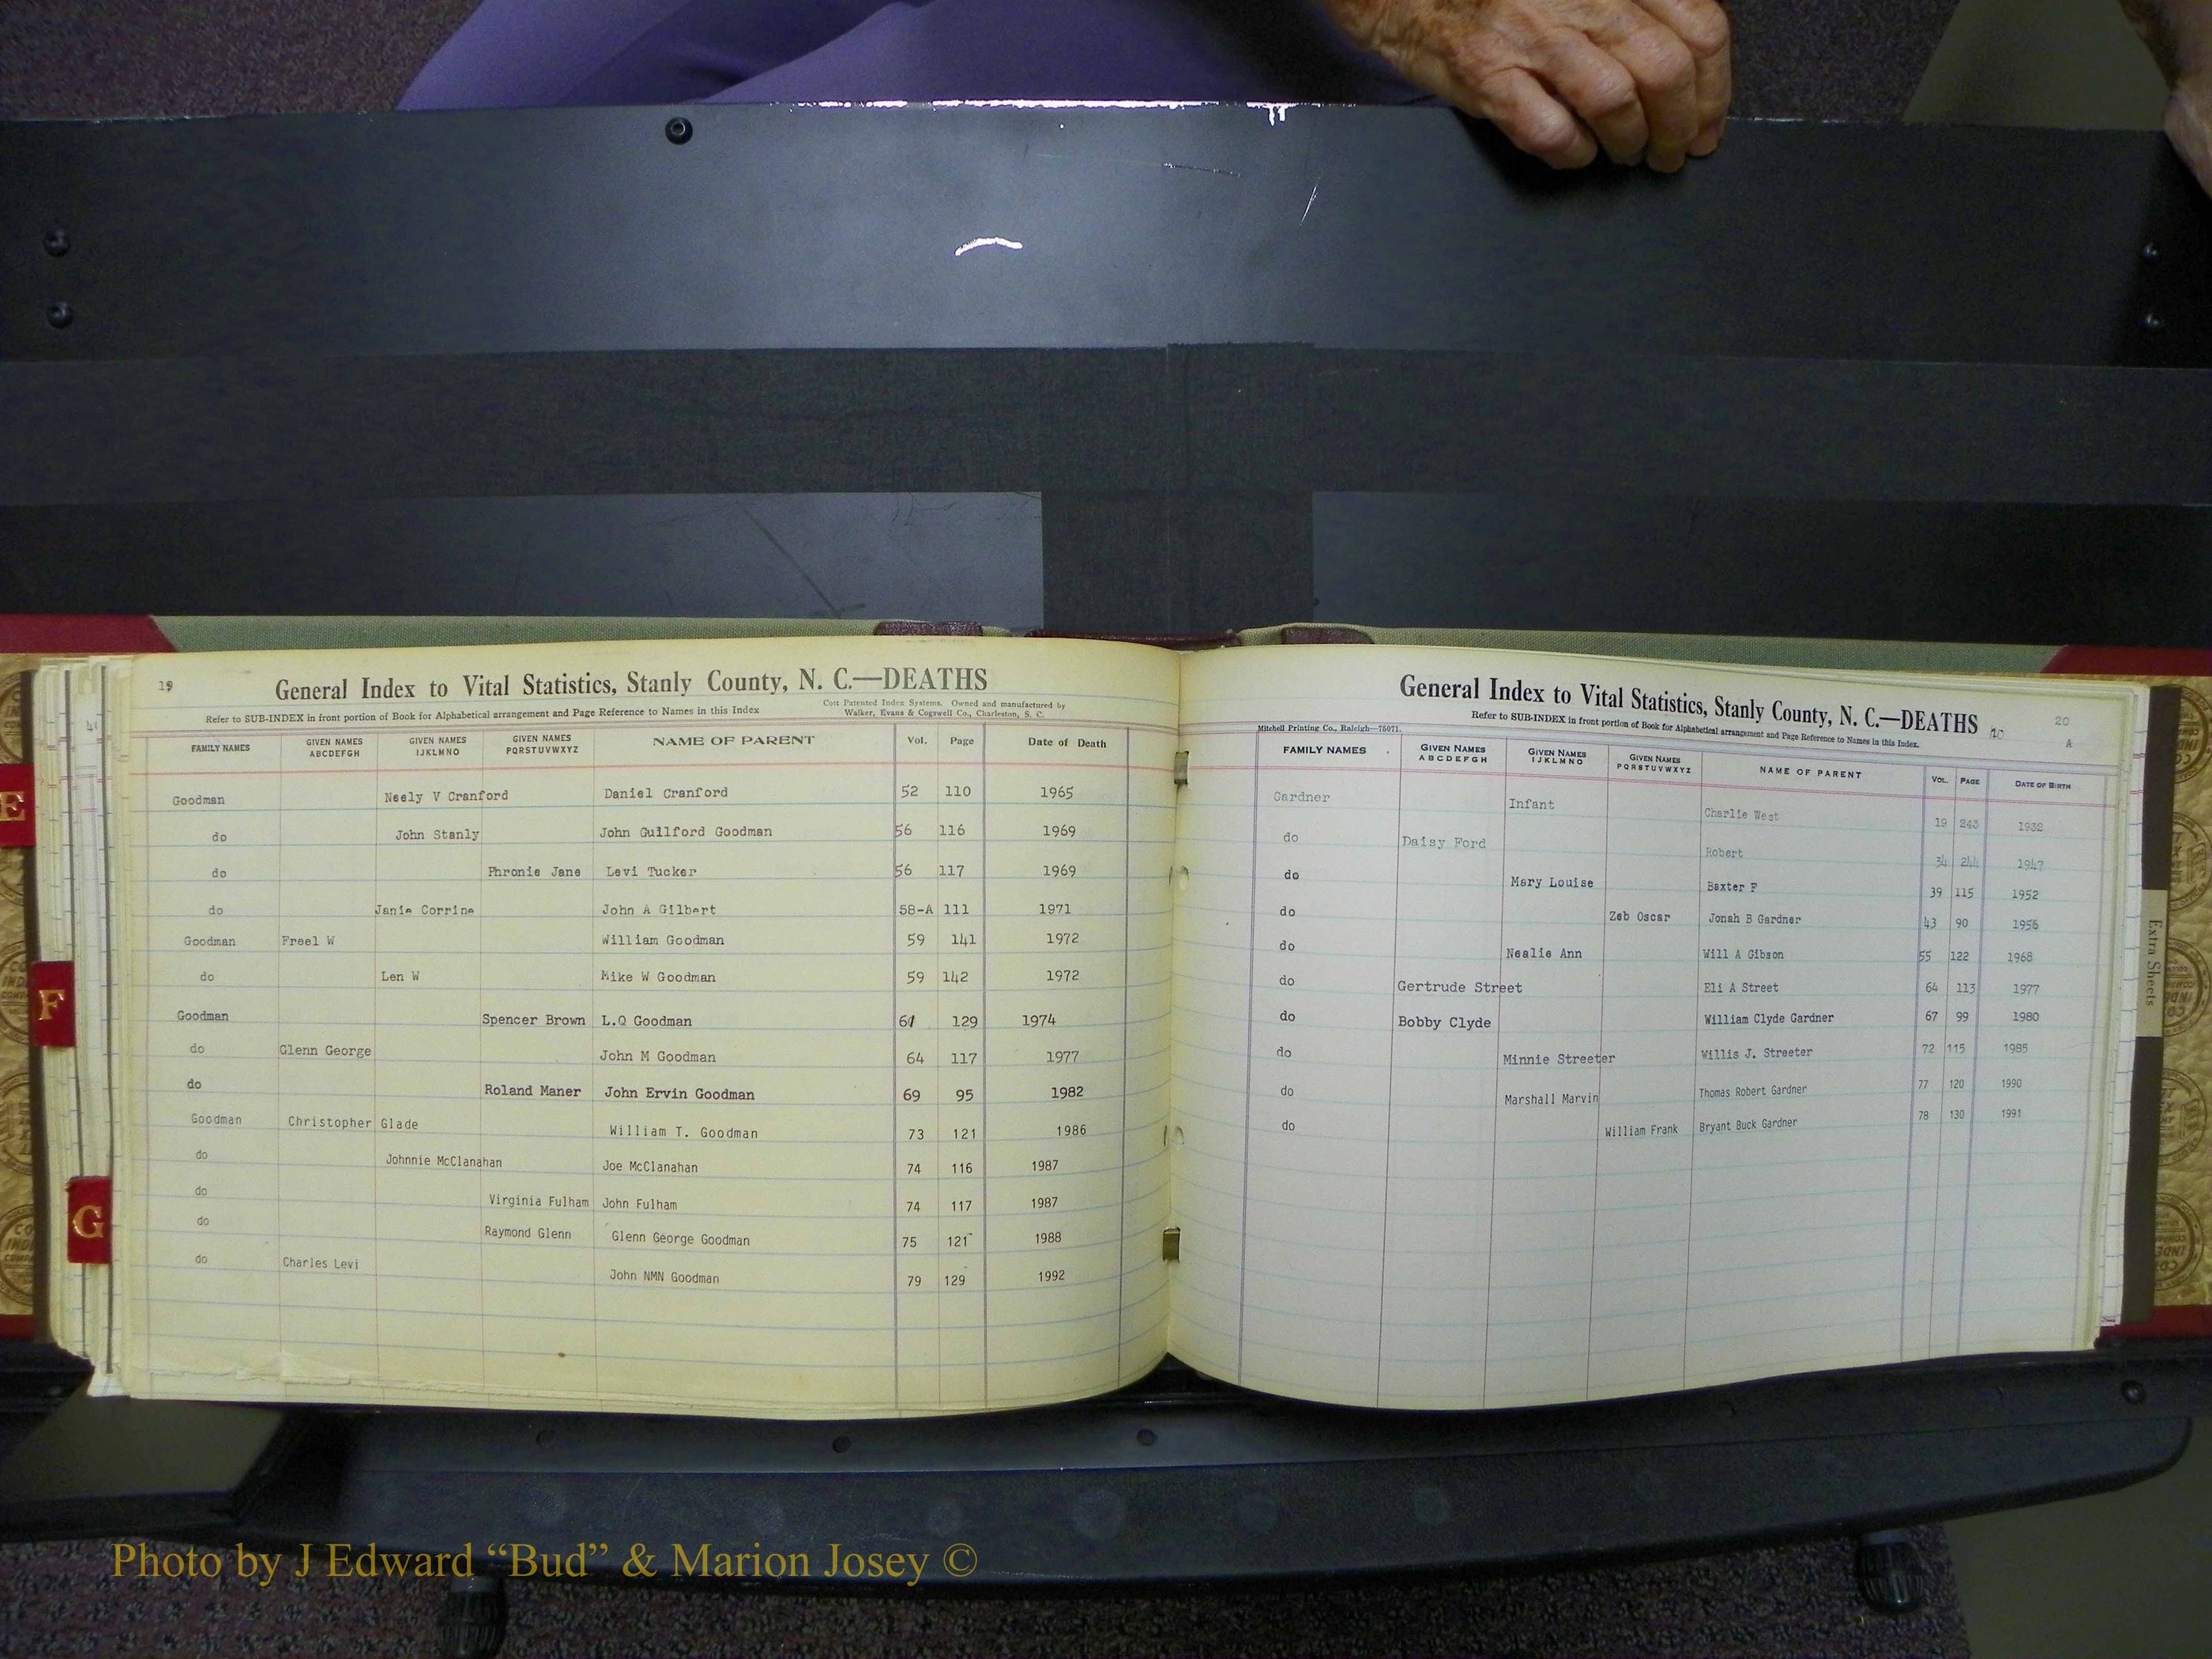 19
General Index to Vital Statistics, Stanly County, N. C.—DEATHS
Refer to SUB-INDEX in front portion of Book for Alphabetical arrangement and Page Reference to Names in this Index
Cott Patented Index Systems. Owned and manufactured by
Walker, Evans & Cogswell Co., Charleston, S. C.
FAMILY NAMES GIVEN NAMES ABCDEFGH GIVEN NAMES IJKLMNO GIVEN NAMES PQRSTUVWXYZ NAME OF PARENT Vol. Page Date of Death
Goodman Neely V Cranford Daniel Cranford 52 110 1965
do John Stanly John Guilford Goodman 56 116 1969
do Phronie Jane Levi Tucker 56 117 1969
do Janie Corrine John A Gilbert 58-A 111 1971
Goodman Freel W William Goodman 59 141 1972
do Len W Mike W Goodman 59 142 1972
Goodman Spencer Brown L.Q Goodman 61 129 1974
do Glenn George John M Goodman 64 117 1977
do Roland Maner John Ervin Goodman 69 95 1982
Goodman Christopher Glade William T. Goodman 73 121 1986
do Johnnie McClanahan Joe McClanahan 74 116 1987
do Virginia Fulham John Fulham 74 117 1987
do Raymond Glenn Glenn George Goodman 75 121 1988
do Charles Levi John NMN Goodman 79 129 1992
E
F
G
General Index to Vital Statistics, Stanly County, N. C.—DEATHS
20
20
A
Refer to SUB-INDEX in front portion of Book for Alphabetical arrangement and Page Reference to Names in this Index.
Mitchell Printing Co., Raleigh—75071.
FAMILY NAMES GIVEN NAMES ABCDEFGH GIVEN NAMES IJKLMNO GIVEN NAMES PQRSTUVWXYZ NAME OF PARENT VOL. PAGE DATE OF BIRTH
Gardner Infant Charlie West 19 243 1932
do Daisy Ford Robert 34 244 1947
do Mary Louise Baxter F 39 115 1952
do Zeb Oscar Jonah B Gardner 43 90 1956
do Nealie Ann Will A Gibson 55 122 1968
do Gertrude Street Eli A Street 64 113 1977
do Bobby Clyde William Clyde Gardner 67 99 1980
do Minnie Streeter Willis J. Streeter 72 115 1985
do Marshall Marvin Thomas Robert Gardner 77 120 1990
do William Frank Bryant Buck Gardner 78 130 1991
Extra Sheets
Photo by J Edward “Bud” & Marion Josey ©